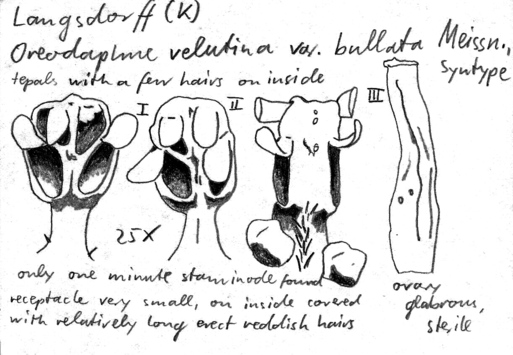 Langsdorff (K)
Oreodaphne velutina var. bullata Meissn.,
syntype
tepals with a few hairs on inside
I II III
25x
only one minute staminode found
receptacle very small, on inside covered
with relatively long erect reddish hairs
ovary
glabrous,
sterile